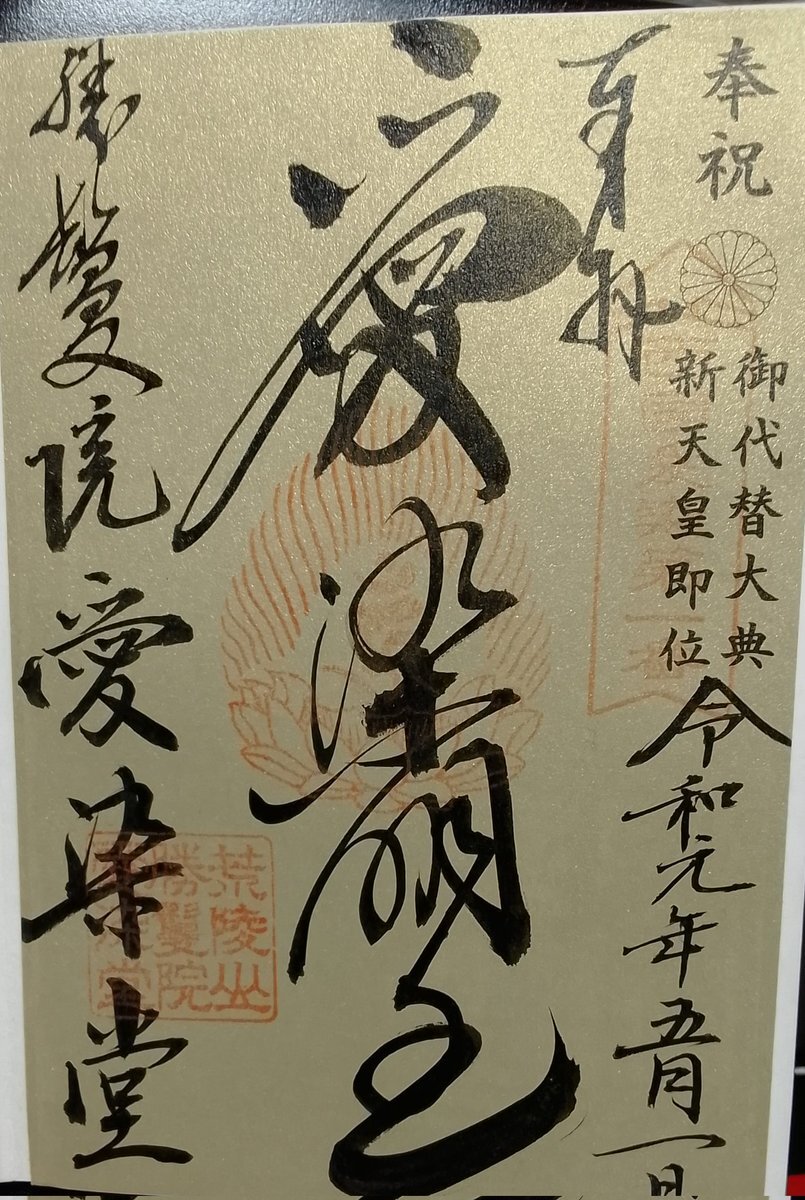 奉祝
御代替大典
新天皇即位
令和元年五月一日
奉拝
愛染明王
勝鬘院愛染堂
荒陵山
勝鬘院
愛染堂